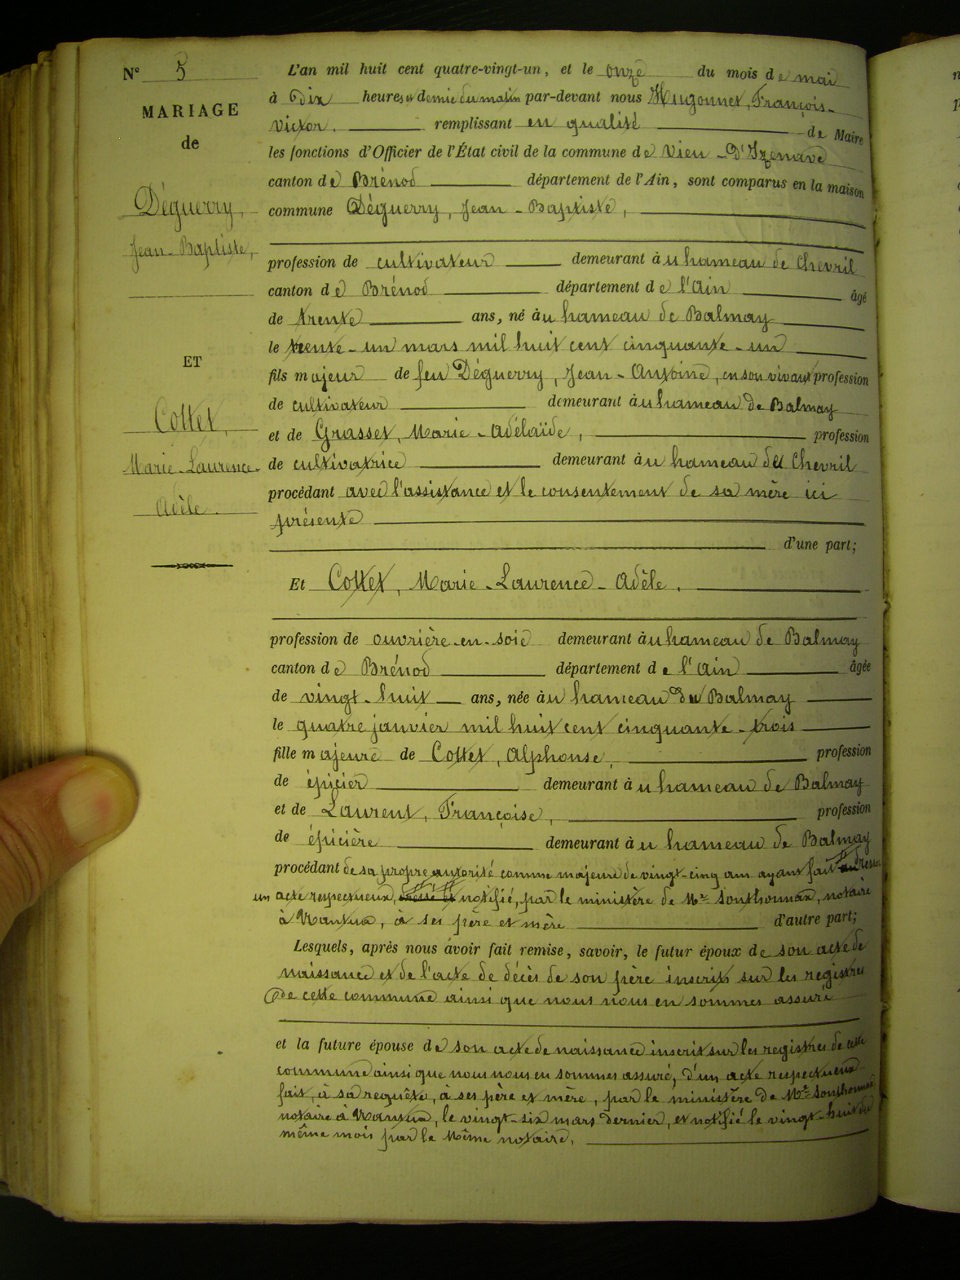 N° 5
MARIAGE
de
Déguerry,
Jean-Baptiste,
ET
Cottet,
Marie-Laurence-
Adèle.
L'an mil huit cent quatre-vingt-un, et le onze du mois de mai
à Dix heures et demie du matin par-devant nous Hugonnet, François-
Victor, remplissant en qualité de Maire
les fonctions d'Officier de l'État civil de la commune de Vieu-D'Izenave
canton de Brénod département de l'Ain, sont comparus en la maison
commune Déguerry, Jean-Baptiste,
profession de cultivateur demeurant au hameau de Chevril
canton de Brénod département de l'Ain âgé
de trente ans, né au hameau de Balmay
le trente-un mars mil huit cent cinquante-un
fils majeur de feu Déguerry, Jean-Antoine, en son vivant profession
de cultivateur demeurant au hameau de Balmay
et de Grasset, Marie-Adélaïde, profession
de cultivatrice demeurant au hameau de Chevril
procédant avec l'assistance et le consentement de sa mère ici
présente
d'une part;
Et Cottet, Marie-Laurence-Adèle.
profession de ouvrière-en-soie demeurant au hameau de Balmay
canton de Brénod département de l'Ain âgée
de vingt-huit ans, née au hameau de Balmay
le quatre janvier mil huit cent cinquante-trois
fille majeure de Cottet, Alphonse, profession
de épicier demeurant au hameau de Balmay
et de Laurent, Françoise, profession
de épicière demeurant au hameau de Balmay
procédant de sa propre autorité comme majeure de vingt-cinq ans ayant fait dresser
un acte respectueux, notifié, par le ministère de Mr Southonnax, notaire
à Nantua, à ses père et mère d'autre part;
Lesquels, après nous avoir fait remise, savoir, le futur époux de son acte de
naissance et de l'acte de décès de son père inscrits sur les registres
de cette commune ainsi que nous nous en sommes assuré
et la future épouse de son acte de naissance inscrit sur les registres de cette
commune ainsi que nous nous en sommes assuré, d'un acte respectueux
fait, à sa requête, à ses père et mère, par le ministère de Mr Southonnax
notaire à Nantua, le vingt-six mars dernier, et notifié le vingt-huit du
même mois par le même notaire,